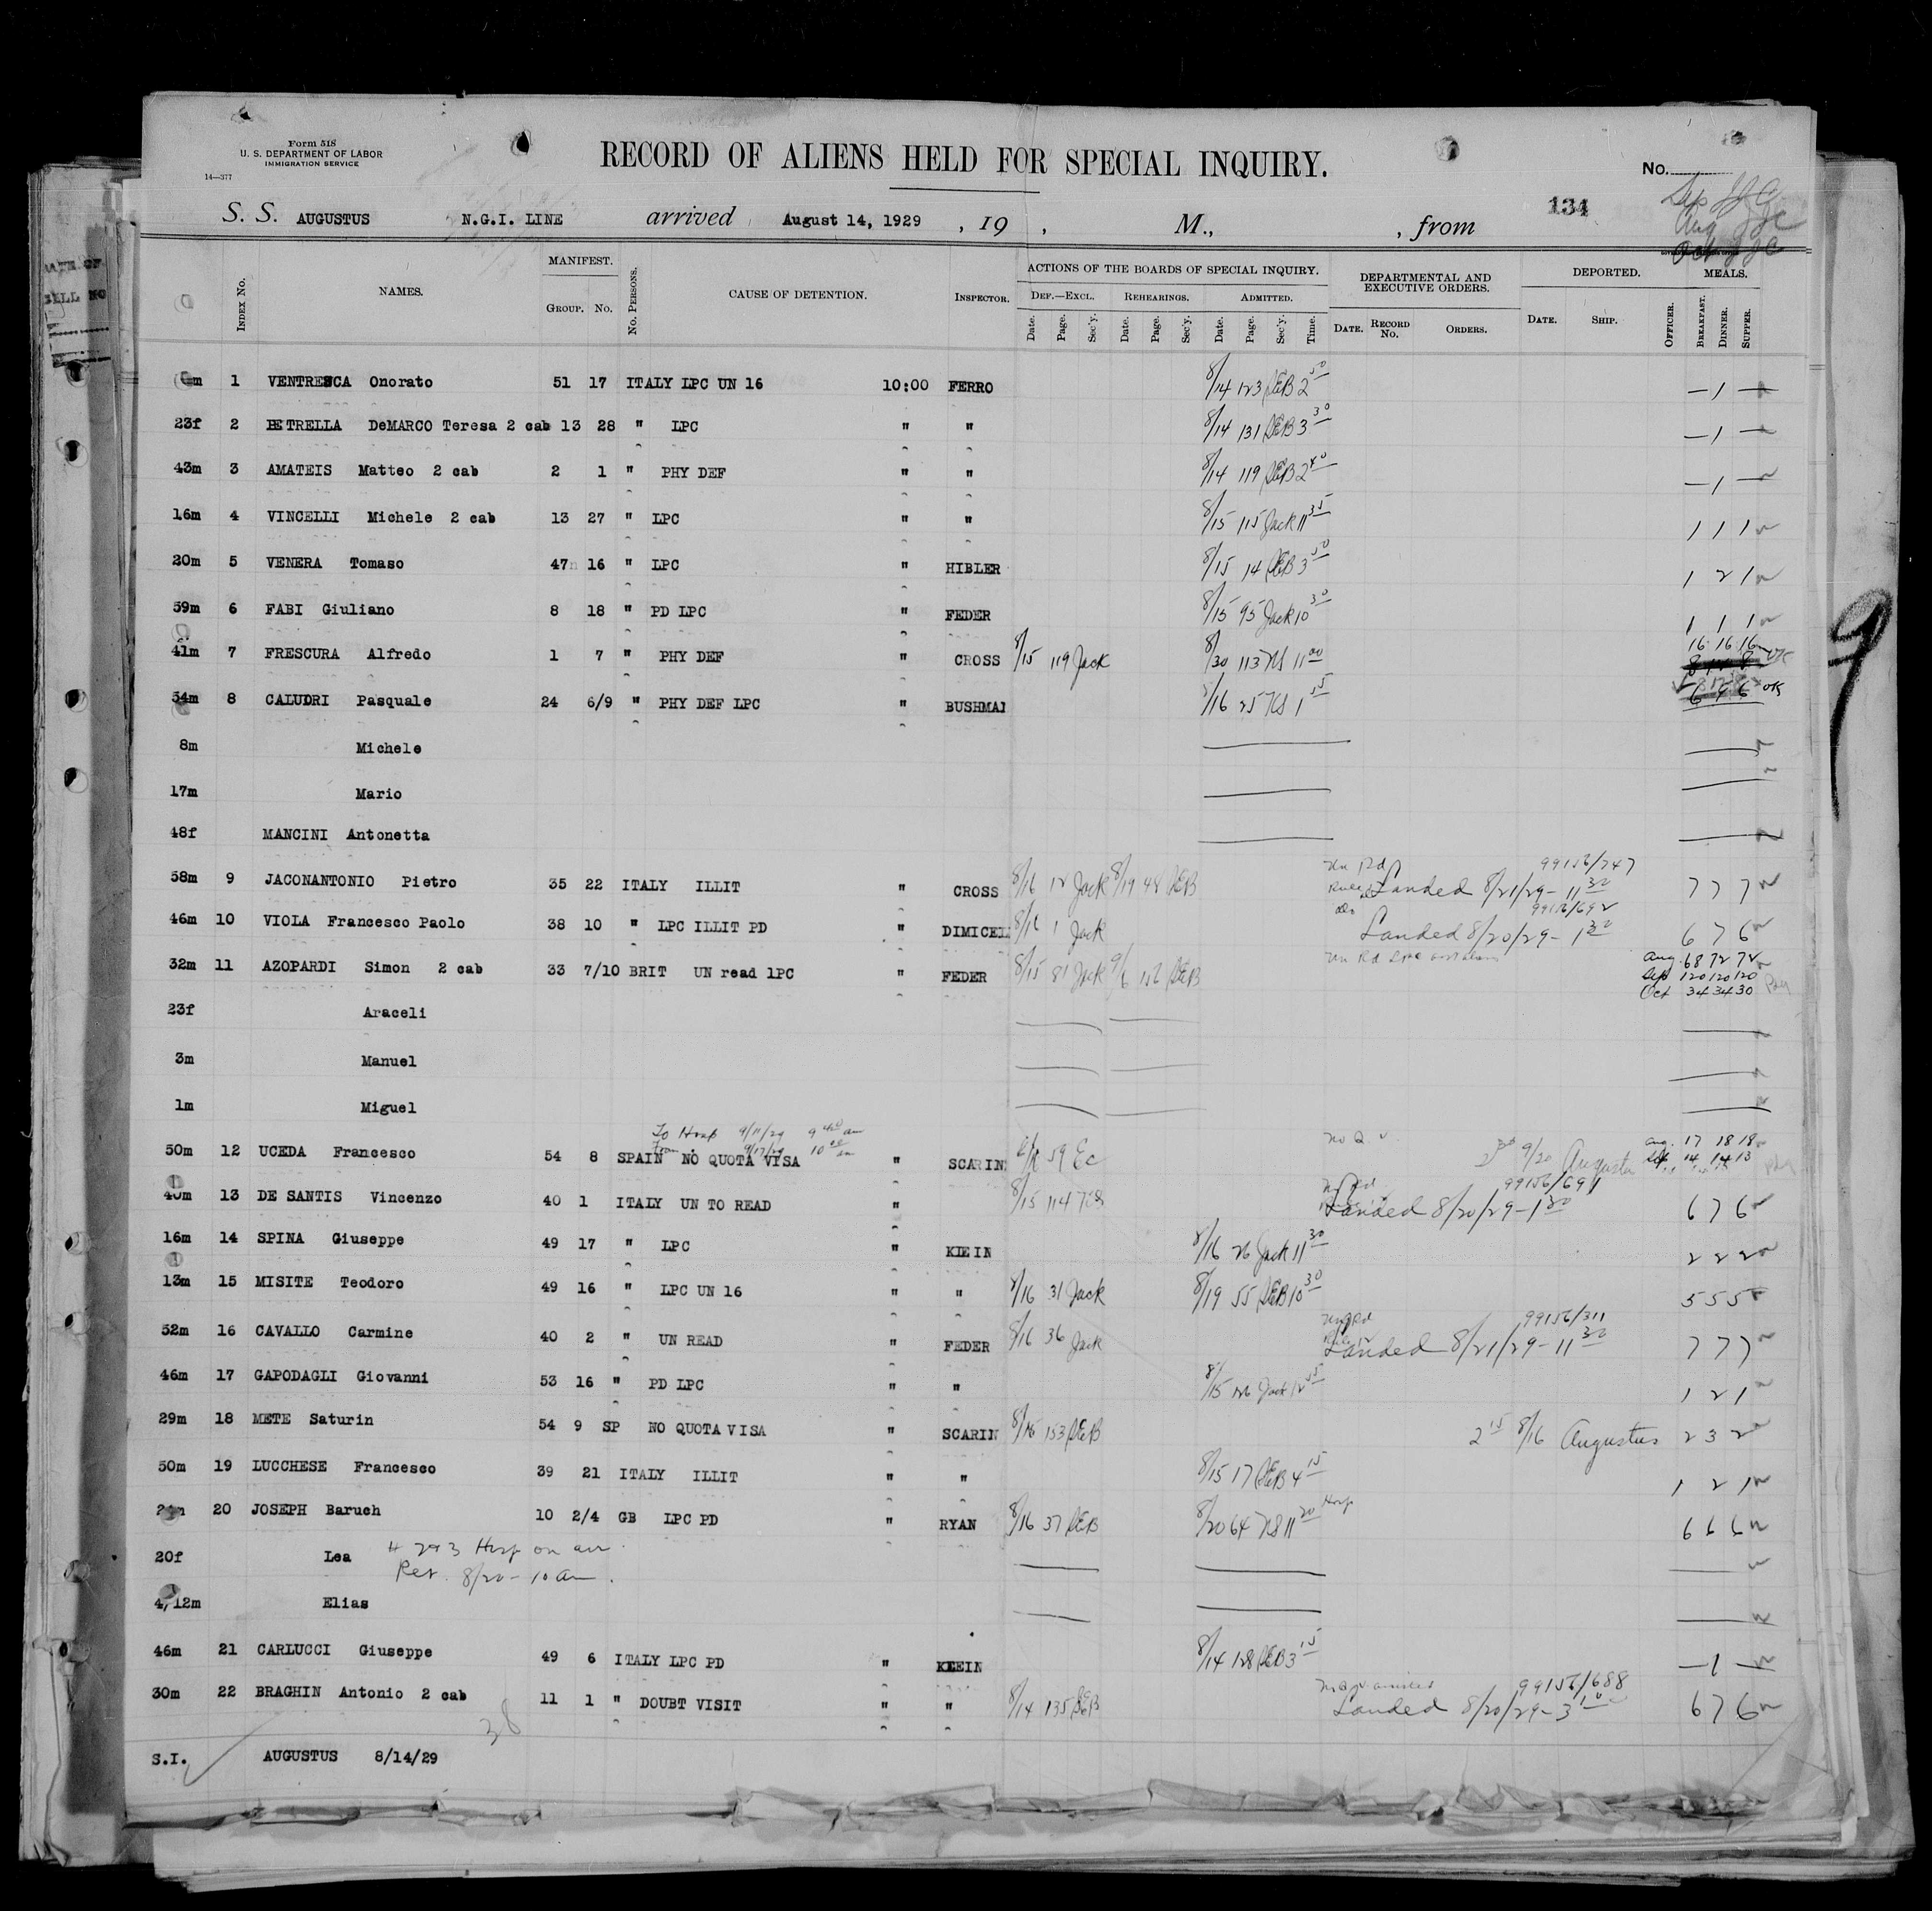 Form 518
U. S. DEPARTMENT OF LABOR
IMMIGRATION SERVICE
14—377
RECORD OF ALIENS HELD FOR SPECIAL INQUIRY.
No.
134
S. S. AUGUSTUS N.G.I. LINE arrived August 14, 1929 , 19 , M., , from
INDEX No. NAMES. MANIFEST. GROUP. No. No. PERSONS. CAUSE OF DETENTION. INSPECTOR. ACTIONS OF THE BOARDS OF SPECIAL INQUIRY. DEPARTMENTAL AND EXECUTIVE ORDERS. DEPORTED. MEALS.
DEF.—EXCL. REHEARINGS. ADMITTED.
Date. Page. Sec'y. Date. Page. Sec'y. Date. Page. Sec'y. Time. DATE. RECORD No. ORDERS. DATE. SHIP. OFFICER. BREAKFAST. DINNER. SUPPER.
m 1 VENTRESCA Onorato 51 17 ITALY LPC UN 16 10:00 FERRO 8/14 123 SEB 2 50 — 1 —
23f 2 PETRELLA DeMARCO Teresa 2 cab 13 28 " LPC " " 8/14 131 SEB 3 30 — 1 —
43m 3 AMATEIS Matteo 2 cab 2 1 " PHY DEF " " 8/14 119 SEB 2 40 — 1 —
16m 4 VINCELLI Michele 2 cab 13 27 " LPC " " 8/15 115 Jack 11 35 1 1 1
20m 5 VENERA Tomaso 47 16 " LPC " HIBLER 8/15 14 SEB 3 50 1 2 1
59m 6 FABI Giuliano 8 18 " PD LPC " FEDER 8/15 95 Jack 10 30 1 1 1
41m 7 FRESCURA Alfredo 1 7 " PHY DEF " CROSS 8/15 119 Jack 8/30 113 KS 11 00 16 16 16 OK
54m 8 CALUDRI Pasquale 24 6/9 " PHY DEF LPC " BUSHMAN 8/16 25 KS 1 55 OK
8m Michele
17m Mario
48f MANCINI Antonetta
58m 9 JACONANTONIO Pietro 35 22 ITALY ILLIT " CROSS 8/16 12 Jack 8/19 48 SEB Un Rd 99156/747 Landed 8/21/29 - 11 30 7 7 7
46m 10 VIOLA Francesco Paolo 38 10 " LPC ILLIT PD " DIMICEL 8/16 1 Jack do 99156/692 Landed 8/20/29 - 1 30 6 7 6
32m 11 AZOPARDI Simon 2 cab 33 7/10 BRIT UN read lPC " FEDER 8/15 81 Jack 9/6 152 SEB Aug. 68 72 72
Sep 120 120 120
Oct 34 34 30
23f Araceli
3m Manuel
1m Miguel
To Hosp 9/11/29 9 40 am
From 9/17/29 10 00 am
50m 12 UCEDA Francesco 54 8 SPAIN NO QUOTA VISA " SCARIN 59 Ec No Q V 9/20 Augustus Aug. 17 18 18
14 14 13
40m 13 DE SANTIS Vincenzo 40 1 ITALY UN TO READ " 8/15 114 99156/691 Landed 8/20/29 - 1 30 6 7 6
16m 14 SPINA Giuseppe 49 17 " LPC " KLEIN 8/16 26 Jack 11 30 2 2 2
13m 15 MISITE Teodoro 49 16 " LPC UN 16 " " 8/16 31 Jack 8/19 55 SEB 10 30 5 5 5
52m 16 CAVALLO Carmine 40 2 " UN READ " FEDER 8/16 36 Jack 99156/311 Landed 8/21/29 - 11 30 7 7 7
46m 17 GAPODAGLI Giovanni 53 16 " PD LPC " " 8/15 126 Jack 12 55 1 2 1
29m 18 METE Saturin 54 9 SP NO QUOTA VISA " SCARIN 153 SEB 2 15 8/16 Augustus 2 3 2
50m 19 LUCCHESE Francesco 39 21 ITALY ILLIT " " 8/15 17 SEB 4 15 1 2 1
20 JOSEPH Baruch 10 2/4 GB LPC PD " RYAN 8/16 37 SEB 8/20 64 KS 11 20 Hosp 6 6 6
20f Lea # 293 Hosp on arr.
Ret. 8/20 - 10 am.
4/12m Elias
46m 21 CARLUCCI Giuseppe 49 6 ITALY LPC PD " KLEIN 8/14 128 SEB 3 15 — 1 —
30m 22 BRAGHIN Antonio 2 cab 11 1 " DOUBT VISIT " " 8/14 135 SEB 99156/688 Landed 8/20/29 - 3 10 6 7 6
38
S.I. AUGUSTUS 8/14/29